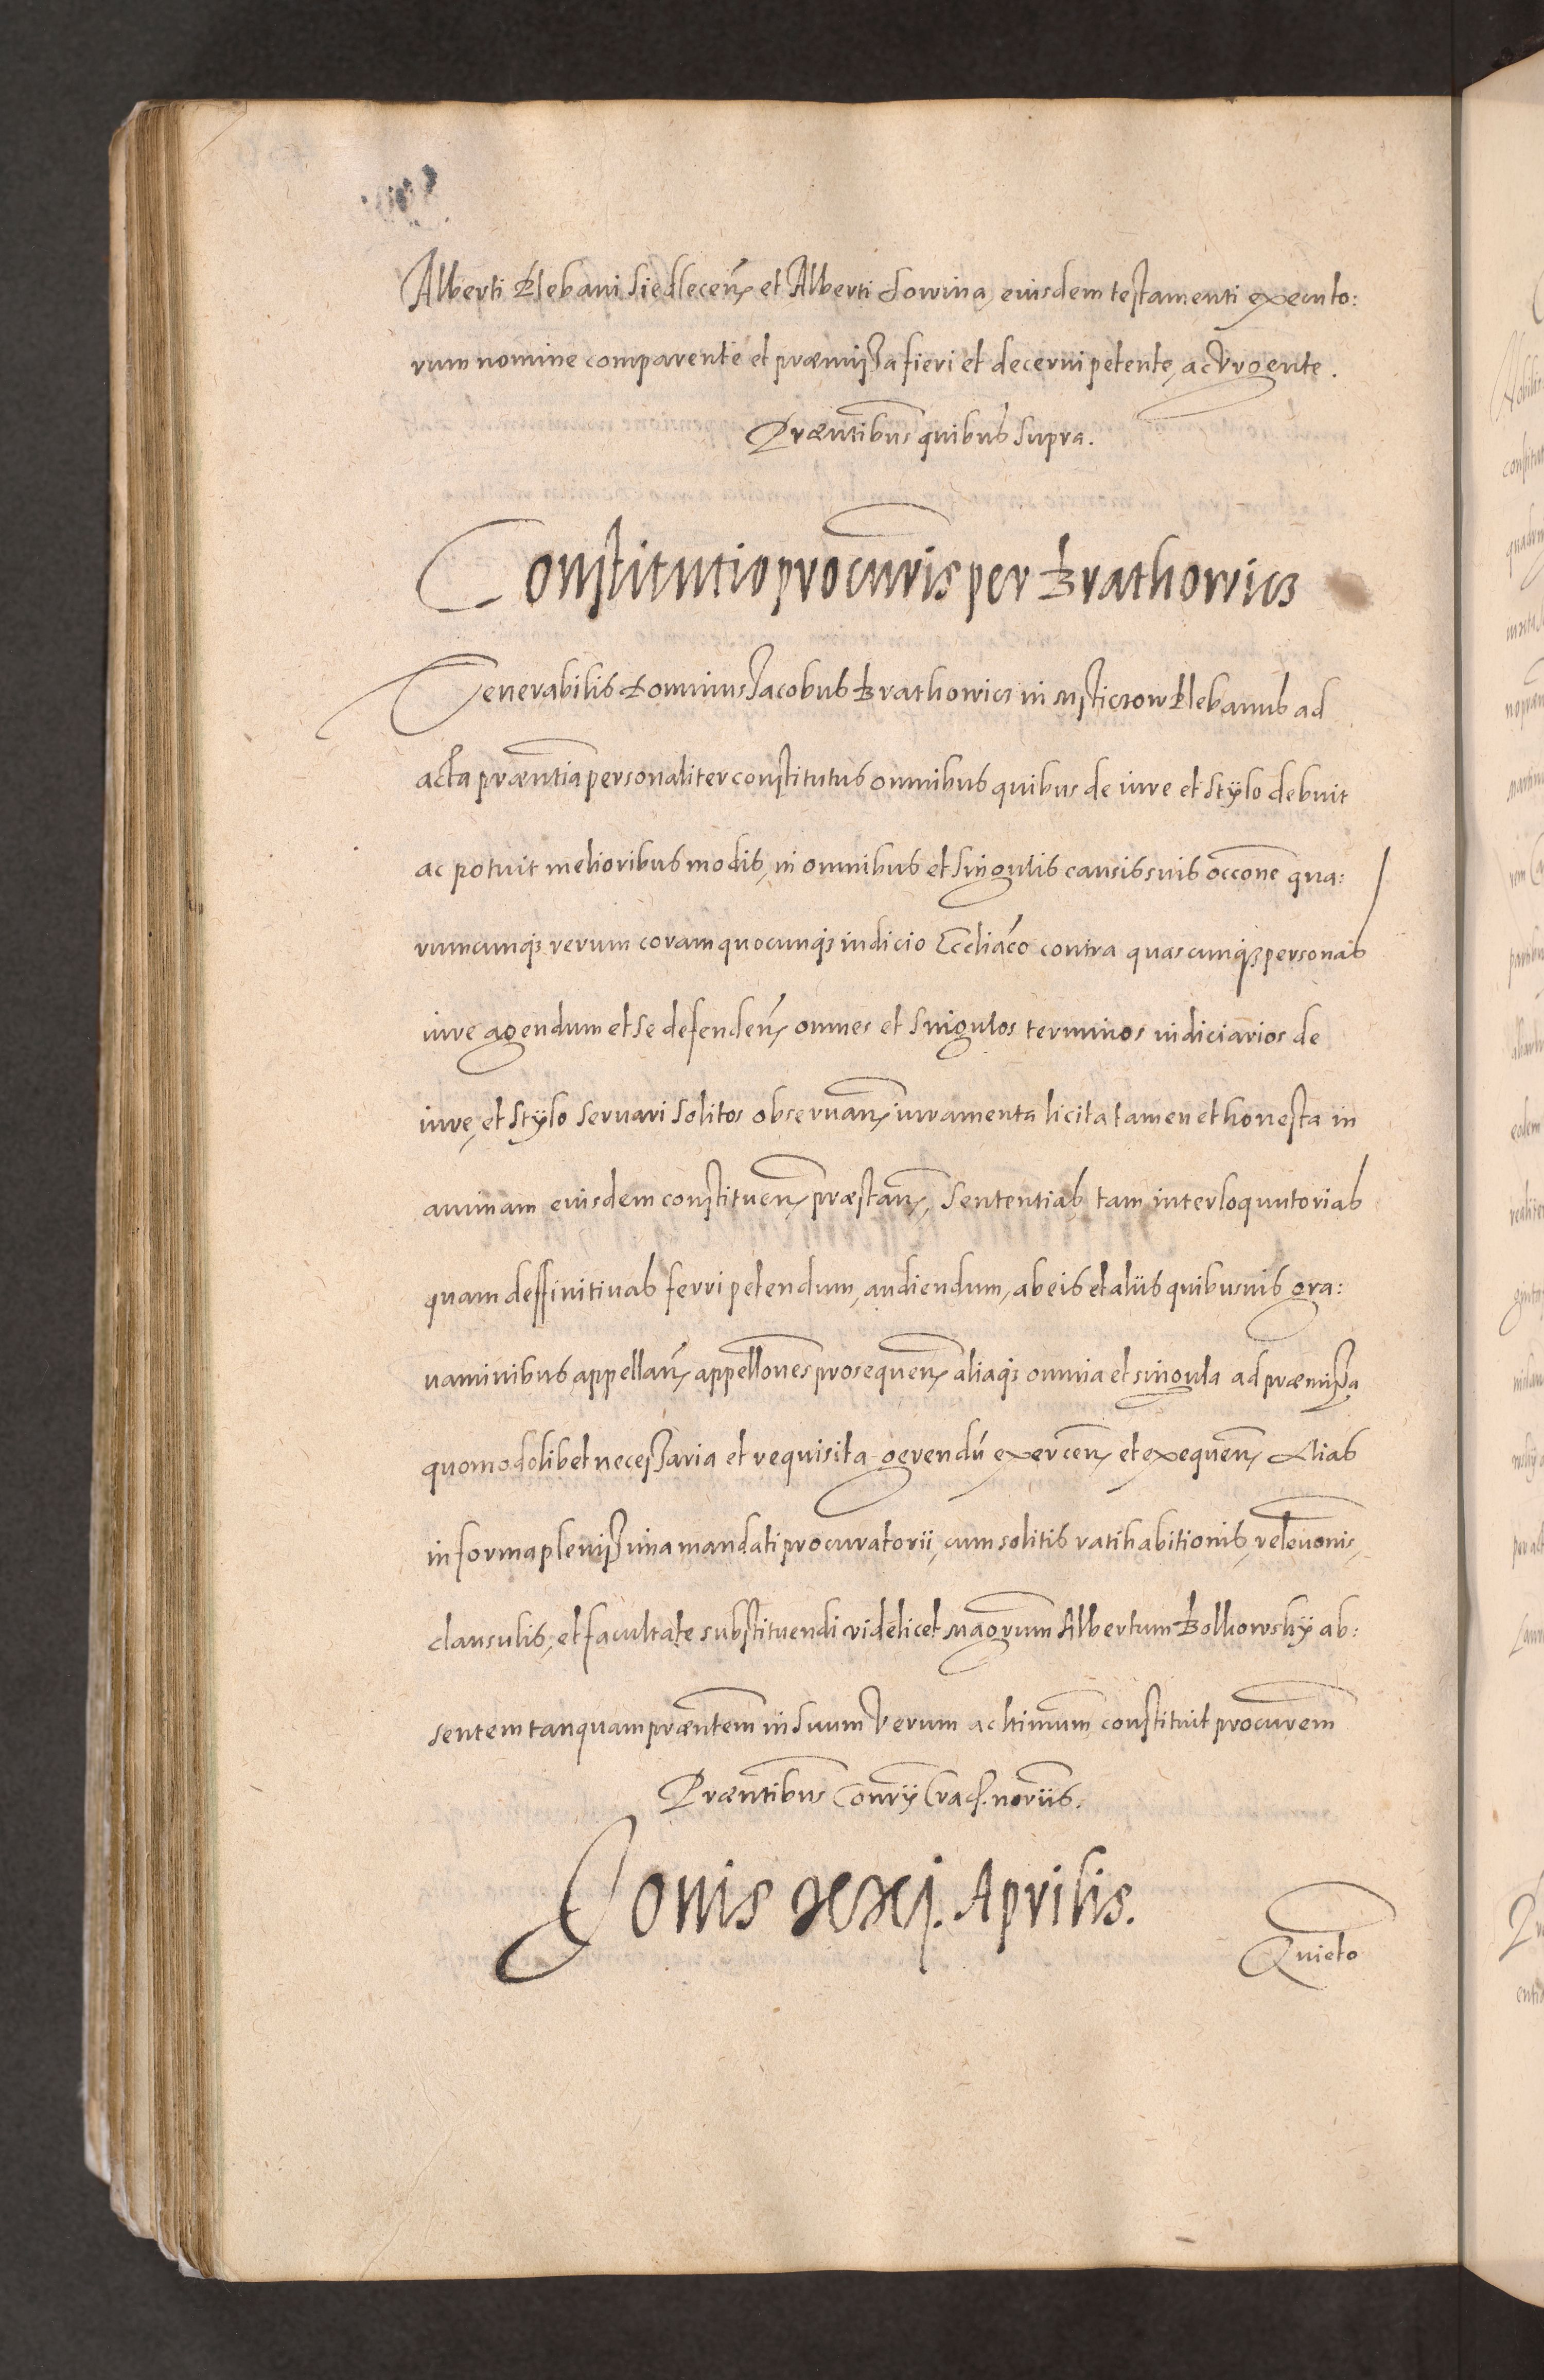 Alberti Plebani Siedlecen̄ et Alberti Sowina, eiusdem testamenti executo:
rum nomine comparente et præmissa fieri et decerni petente, ac Vrgente.
Præn̄tibus quibus supra.
Constitutio procur̄is per Brathowicz
Venerabilis Dominus Jacobus Brathowicz in Plebanus ad
acta præn̄tia personaliter constitutus omnibus quibus de iure et stÿlo debuit
ac potuit melioribus modis, in omnibus et singulis causis suis occōne qua:
rumcunq̢ rerum coram quocunq̢ iudicio Eccliāco contra quascunq̢ personas
iure agendum et se defenden̄ omnes et singulos terminos iudiciarios de
iure, et stÿlo seruari solitos obseruan̄ iuramenta licita tamen et honesta in
animam eiusdem constituen̄ præstan̄, Sententias tam interloquutorias
quam deffinitiuas ferri petendum, audiendum, ab eis et aliis quibusuis gra:
uaminibus appellan̄ appellōnes prosequen̄ aliaq̢ omnia et singula ad præmissa
quomodolibet necessaria et requisita gerendū exercen̄ et exequen̄ Alias
in forma plenissima mandati procuratorii, cum solitis ratihabitionis, releuōnis,
clausulis, et facultate substituendi videlicet Magr̄um Albertum Bolkowskÿ ab:
sentem tanquam præn̄tem in suum Verum ac ltimūm constituit procur̄em
Præn̄tibus Con̄rÿ Crac̄. nor̄iis.
Jouis xxj. Aprilis.
Quieto